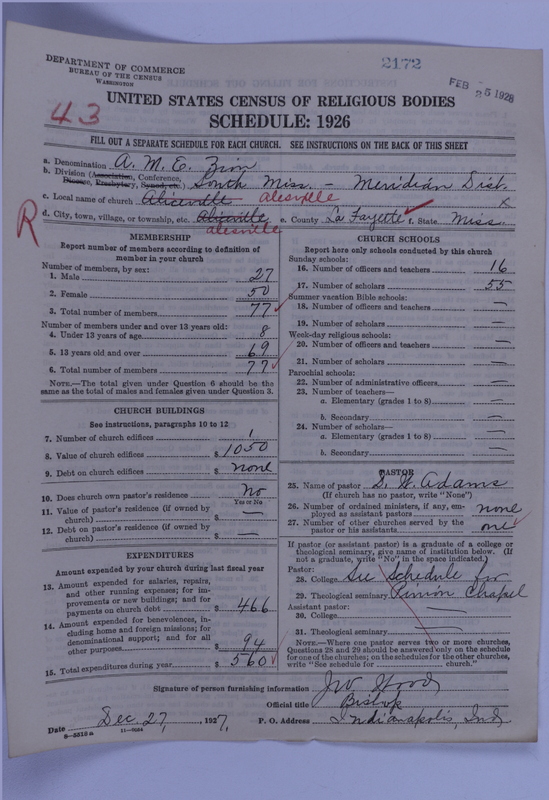 DEPARTMENT OF COMMERCE
BUREAU OF THE CENSUS
WASHINGTON
2172
FEB 25 1928
43
UNITED STATES CENSUS OF RELIGIOUS BODIES
SCHEDULE: 1926
FILL OUT A SEPARATE SCHEDULE FOR EACH CHURCH. SEE INSTRUCTIONS ON THE BACK OF THIS SHEET
a. Denomination A. M. E. Zion
b. Division (Association, Conference, Diocese, Presbytery, Synod, etc.) South Miss. - Meridian Dist.
c. Local name of church Aliceville alesville x
d. City, town, village, or township, etc. Aliceville alesville e. County La Fayette f. State Miss.
R
MEMBERSHIP
Report number of members according to definition of
member in your church
Number of members, by sex:
1. Male 27
2. Female 50
3. Total number of members 77
Number of members under and over 13 years old:
4. Under 13 years of age 8
5. 13 years old and over 69
6. Total number of members 77
NOTE.—The total given under Question 6 should be the
same as the total of males and females given under Question 3.
CHURCH BUILDINGS
See instructions, paragraphs 10 to 12
7. Number of church edifices 1
8. Value of church edifices $ 1050
9. Debt on church edifices $ none
10. Does church own pastor's residence No
Yes or No
11. Value of pastor's residence (if owned by
church) $ —
12. Debt on pastor's residence (if owned by
church) $ —
EXPENDITURES
Amount expended by your church during last fiscal year
13. Amount expended for salaries, repairs,
and other running expenses; for im-
provements or new buildings; and for
payments on church debt $ 466
14. Amount expended for benevolences, in-
cluding home and foreign missions; for
denominational support; and for all
other purposes 94
15. Total expenditures during year $ 560
CHURCH SCHOOLS
Report here only schools conducted by this church
Sunday schools:
16. Number of officers and teachers 16
17. Number of scholars 55
Summer vacation Bible schools:
18. Number of officers and teachers —
19. Number of scholars —
Week-day religious schools:
20. Number of officers and teachers —
21. Number of scholars —
Parochial schools:
22. Number of administrative officers —
23. Number of teachers—
a. Elementary (grades 1 to 8) —
b. Secondary —
24. Number of scholars—
a. Elementary (grades 1 to 8) —
b. Secondary —
PASTOR
25. Name of pastor S. W. Adams
(If church has no pastor, write "None")
26. Number of ordained ministers, if any, em-
ployed as assistant pastors none
27. Number of other churches served by the
pastor or his assistants one
If pastor (or assistant pastor) is a graduate of a college or
theological seminary, give name of institution below. (If
not a graduate, write "No" in the space indicated.)
Pastor:
28. College See schedule for
29. Theological seminary Union Chapel
Assistant pastor:
30. College —
31. Theological seminary —
NOTE.—Where one pastor serves two or more churches,
Questions 28 and 29 should be answered only on the schedule
for one of the churches; on the schedules for the other churches,
write "See schedule for ........ church."
Signature of person furnishing information J W Wood
Official title Bishop
Date Dec 27, 1927. P. O. Address Indianapolis, Ind
8—5518 a 11—9554